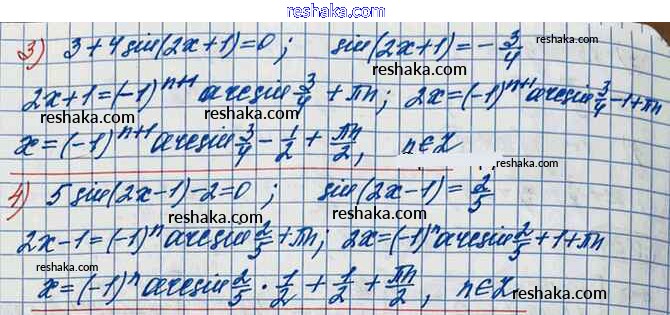 www.reshaka.com
3) 3+4sin(2x+1)=0; sin(2x+1)=-3/4
reshaka.com reshaka.com
2x+1=(-1)^{n+1} arcsin 3/4 + πn; 2x=(-1)^{n+1} arcsin 3/4 -1+πn
reshaka.com reshaka.com
x=(-1)^{n+1} arcsin 3/4 - 1/2 + πn/2, n∈Z
reshaka.com
4) 5sin(2x-1)-2=0; sin(2x-1)=2/5
reshaka.com reshaka.com
2x-1=(-1)^n arcsin 2/5 +πn; 2x=(-1)^n arcsin 2/5 +1+πn
reshaka.com reshaka.com
x=(-1)^n arcsin 2/5 · 1/2 + 1/2 + πn/2, n∈Z
reshaka.com reshaka.com